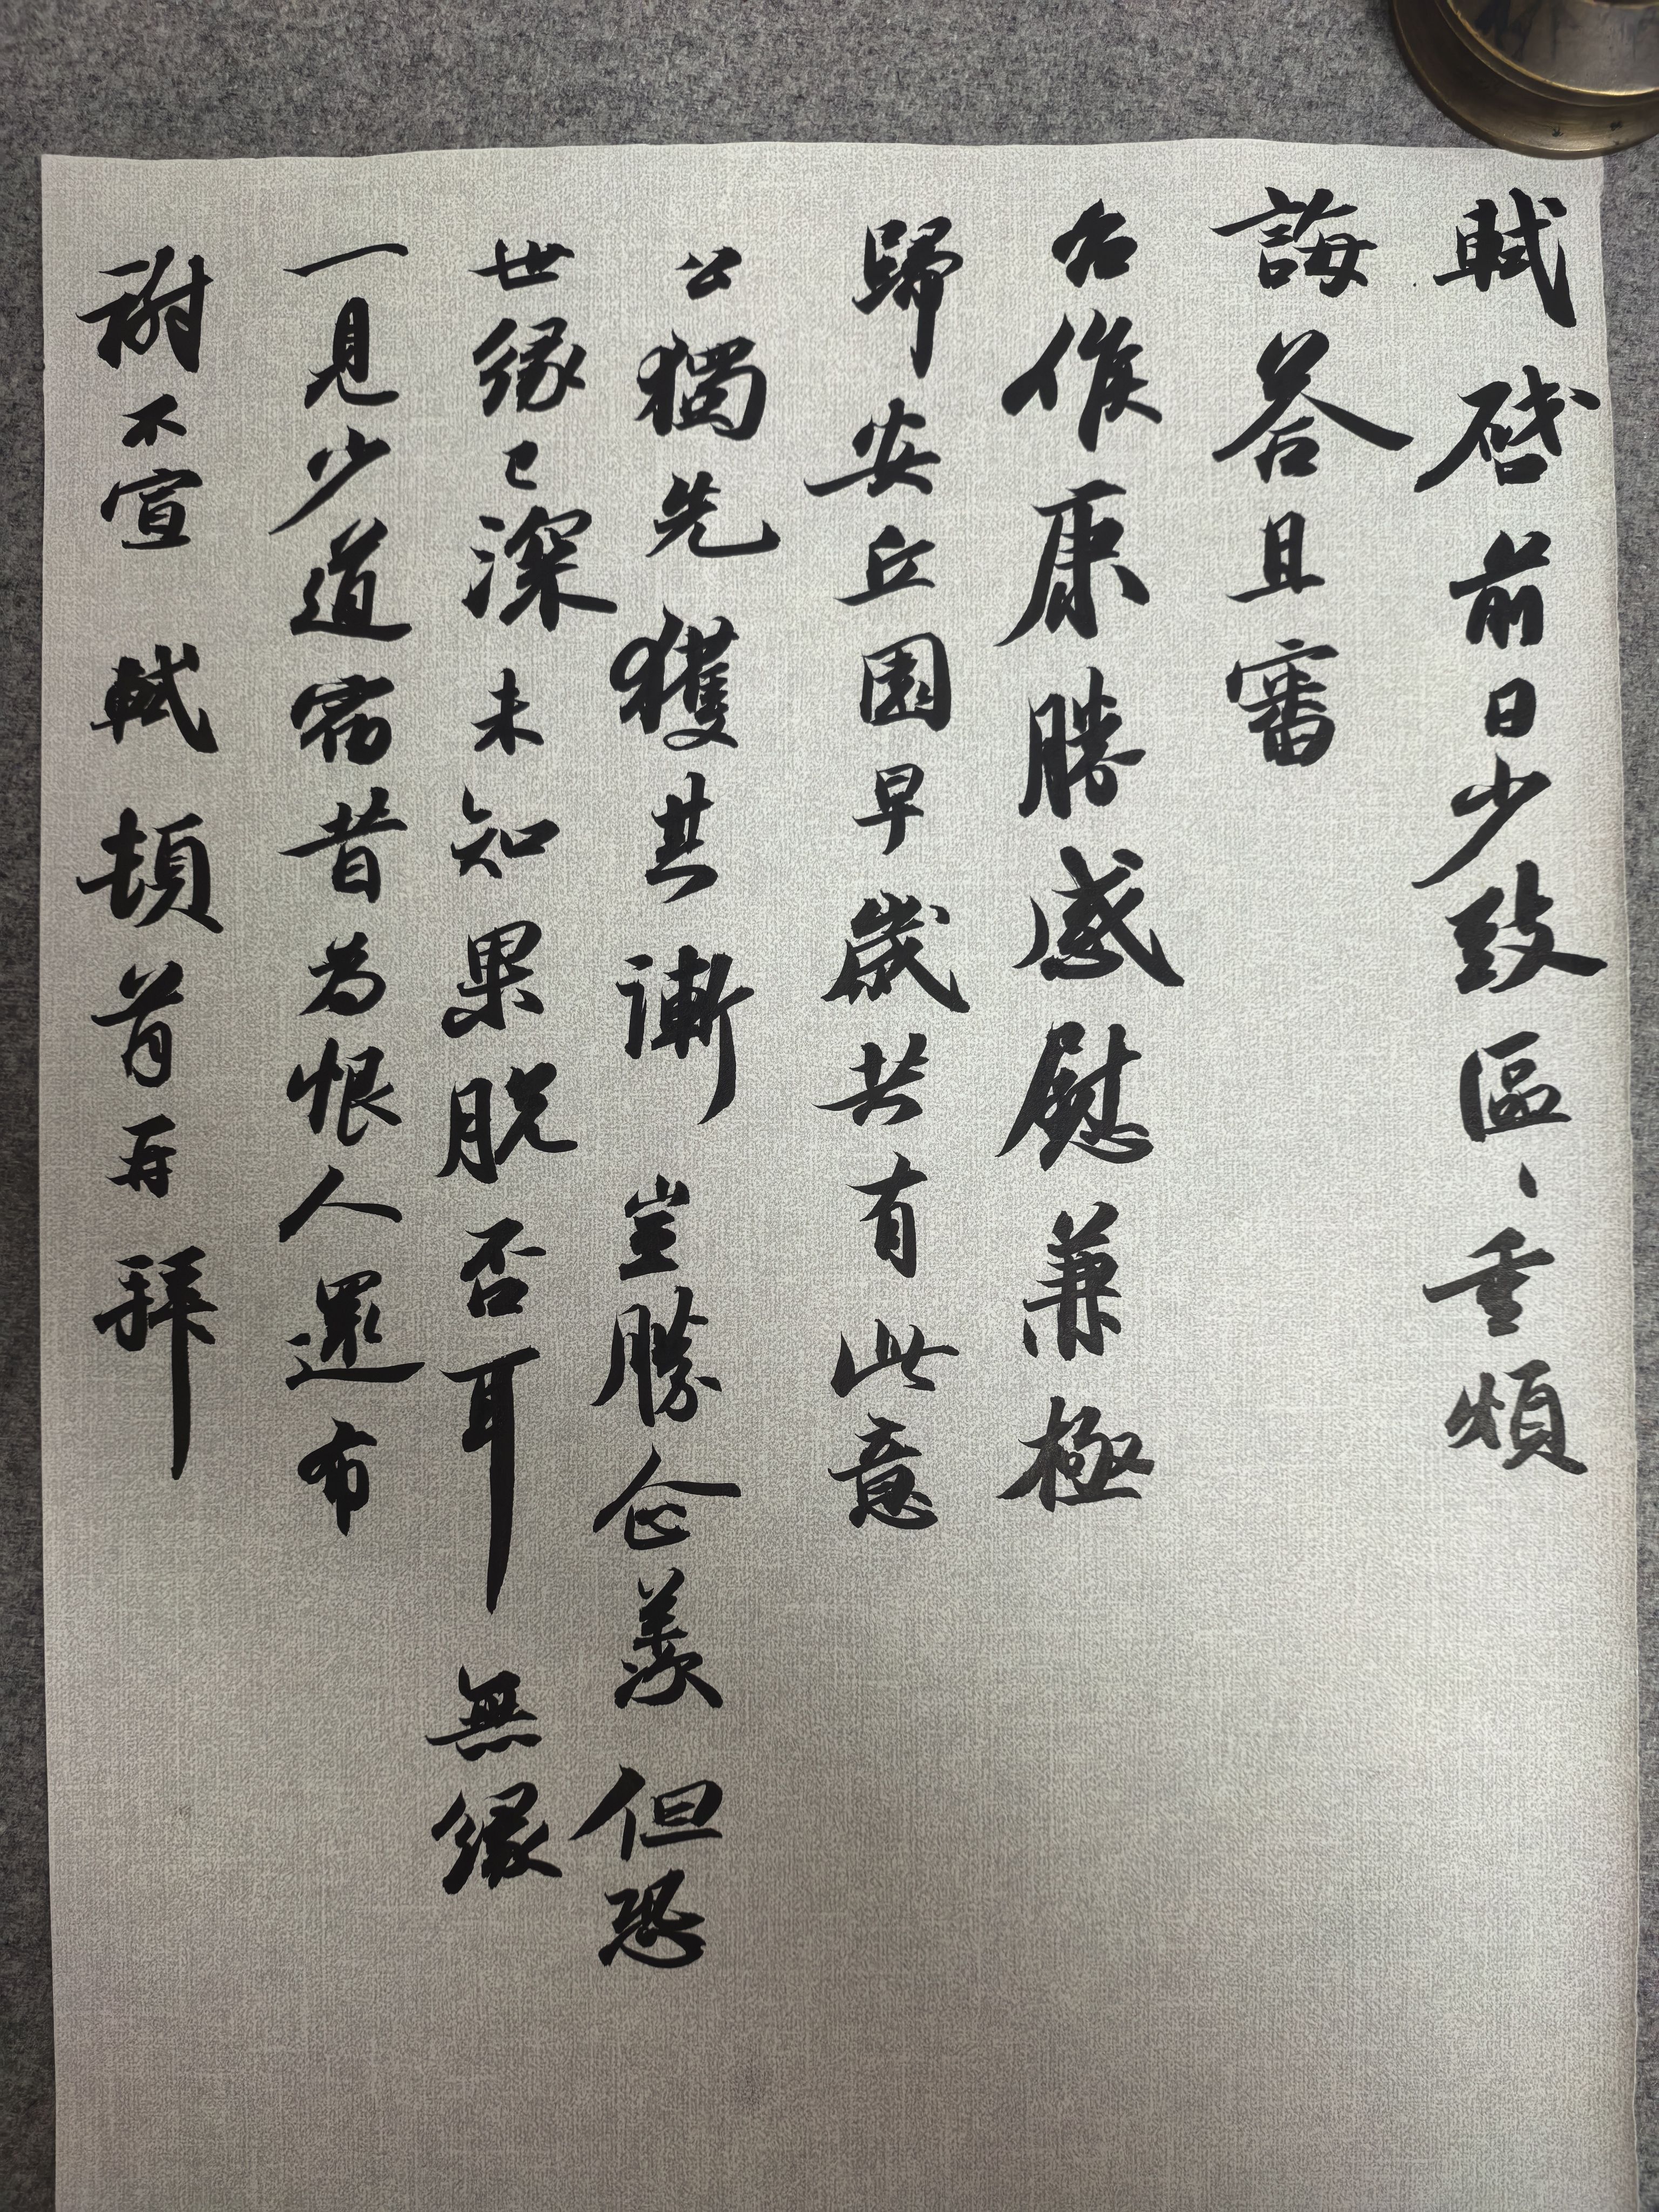 軾啓前日少致區、重煩
誨答且審
台候康勝感慰兼極
歸安丘園早歲共有此意
公獨先獲其漸豈勝企羨但恐
世緣已深未知果脫否耳無緣
一見少道宿昔為恨人還布
謝不宣 軾頓首再拜